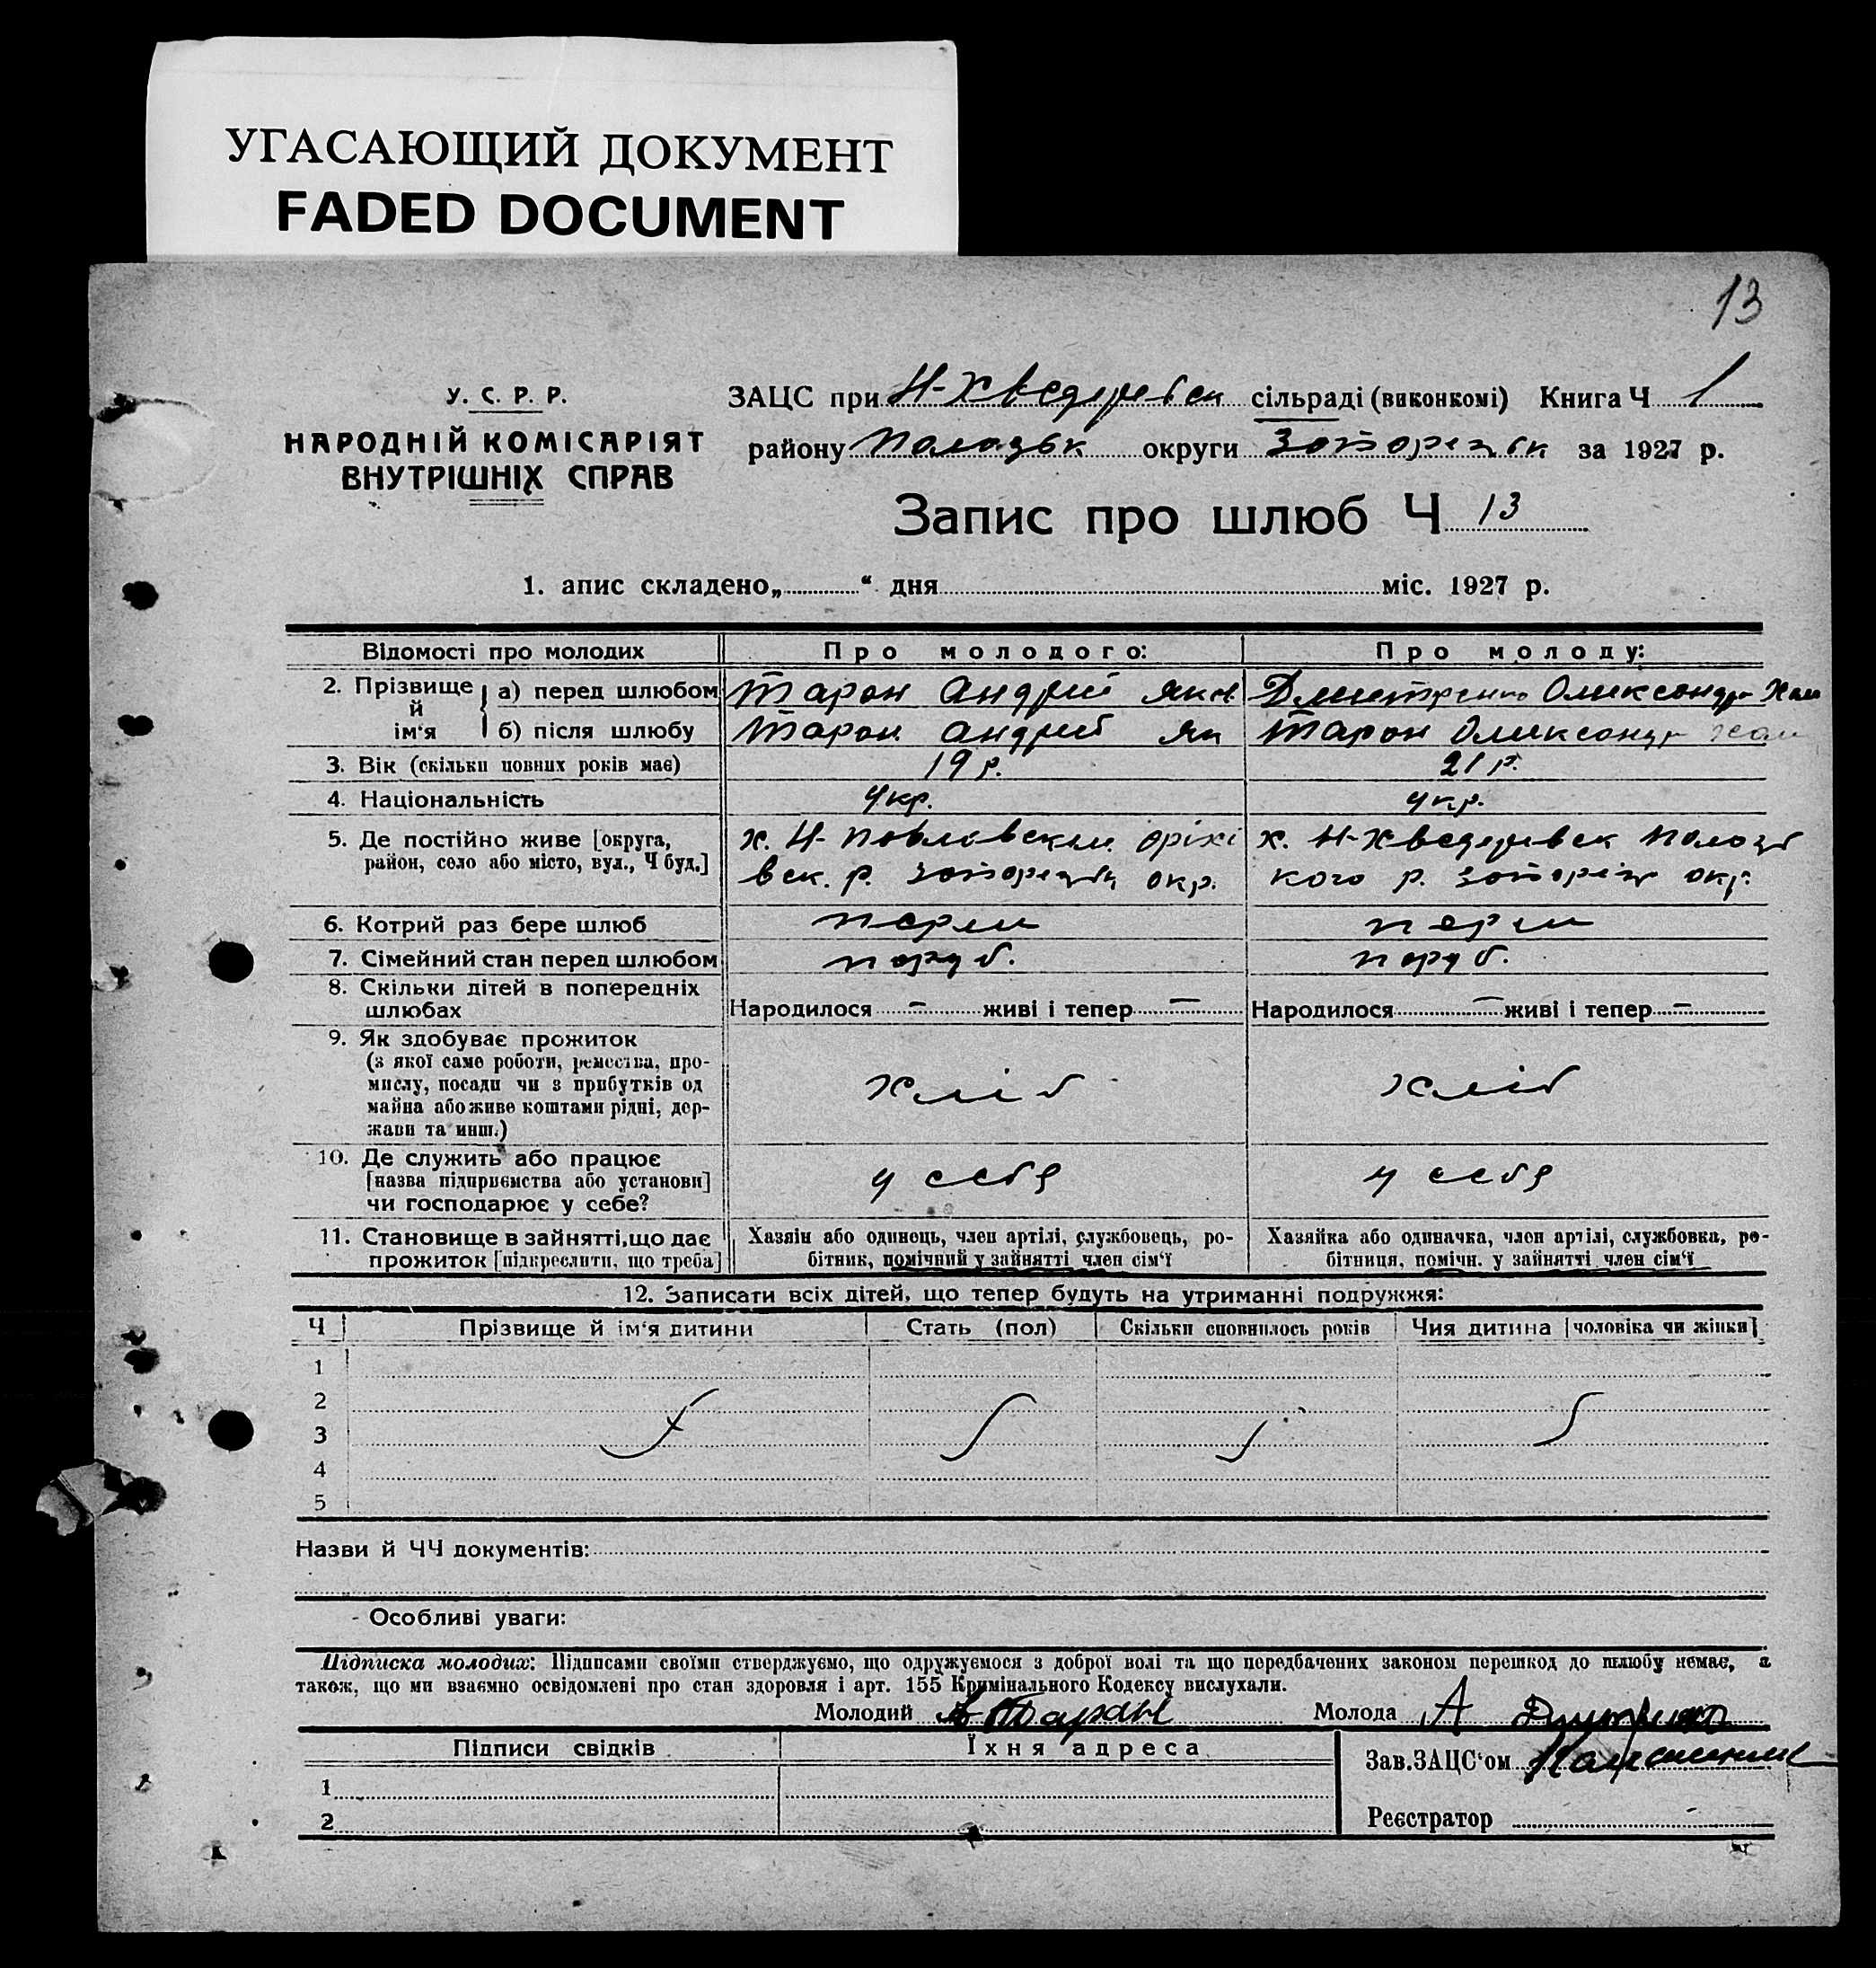 УГАСАЮЩИЙ ДОКУМЕНТ
FADED DOCUMENT
13
У. С. Р. Р.
НАРОДНІЙ КОМІСАРІЯТ
ВНУТРІШНІХ СПРАВ
ЗАЦС при Н-Хведоревск сільраді (виконкомі) Книга Ч 1
району Полозьк округи за 1927 р.
Запис про шлюб Ч 13
1. апис складено „ “ дня міс. 1927 р.
Відомості про молодих Про молодого: Про молоду:
2. Прізвище й ім‘я а) перед шлюбом Таран Андрій Яков Дмитренко Олександр Хам
б) після шлюбу Таран Андрій Як Таран Олександр Хам
3. Вік (скільки повних років має) 19 р. 21 р.
4. Національність Укр. укр.
5. Де постійно живе [округа, х. Н-Павлівськм Оріхі х. Н-Хведоревск Полозь
район, село або місто, вул., Ч буд.] вск. р. окр. кого р. окр.
6. Котрий раз бере шлюб перш перш
7. Сімейний стан перед шлюбом паруб. паруб.
8. Скільки дітей в попередніх
шлюбах Народилося — живі і тепер — Народилося — живі і тепер —
9. Як здобуває прожиток
(з якої саме роботи, ремества, про-
мислу, посади чи з прибутків од хліб хліб
майна або живе коштами рідні, дер-
жави та инш.)
10. Де служить або працює
[назва підприємства або установи] у себя у себя
чи господарює у себе?
11. Становище в зайнятті, що дає Хазяїн або одинець, член артілі, службовець, ро- Хазяйка або одиначка, член артілі, службовка, ро-
прожиток [підкреслити, що треба] бітник, помічний у зайнятті член сім‘ї бітниця, помічн. у зайнятті член сім‘ї
12. Записати всіх дітей, що тепер будуть на утриманні подружжя:
Ч Прізвище й ім‘я дитини Стать (пол) Скільки сповнилось років Чия дитина [чоловіка чи жінки]
1
2
3
4
5
Назви й ЧЧ документів:
Особливі уваги:
Підписка молодих: Підписами своїми стверджуємо, що одружуємося з доброї волі та що передбачених законом перешкод до шлюбу немає, а
також, що ми взаємно освідомлені про стан здоровля і арт. 155 Кримінального Кодексу вислухали.
Молодий А Таран Молода А Дмитренко
Підписи свідків Їхня адреса
Зав. ЗАЦС‘ом
1
Реєстратор
2